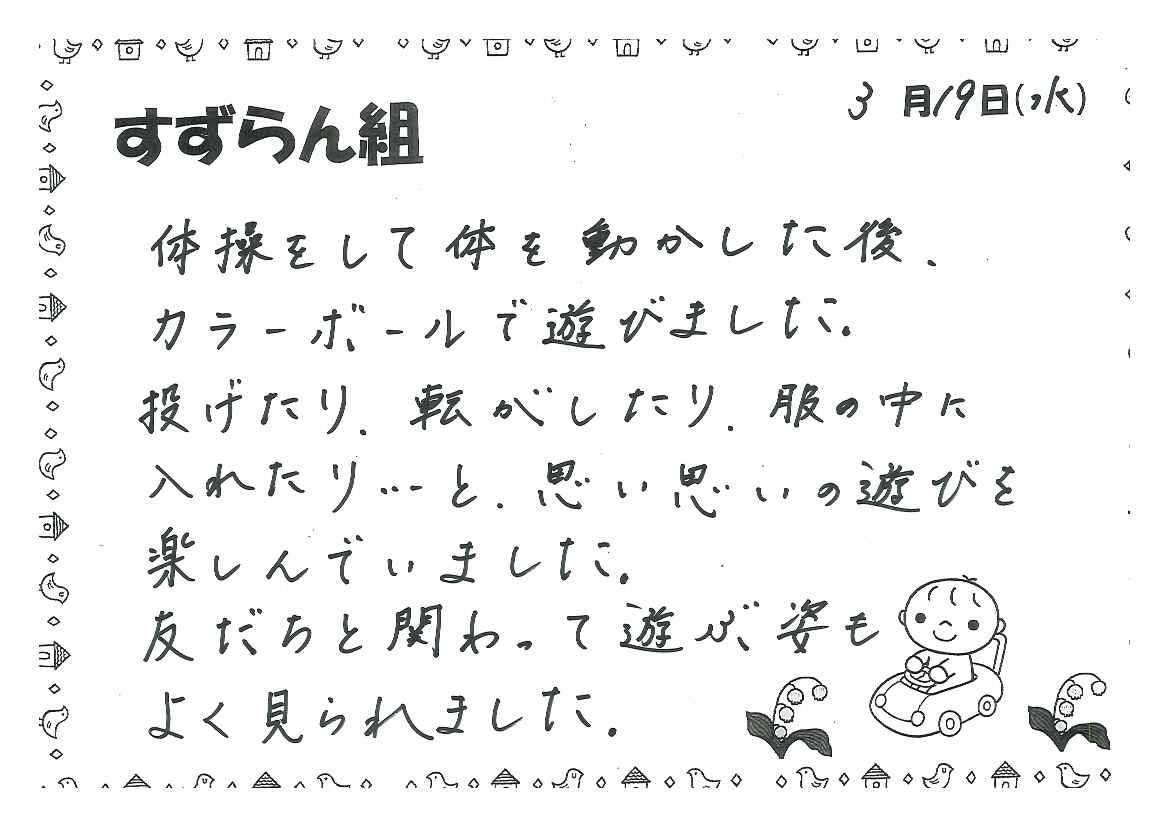 3月19日(水)
すずらん組
体操をして体を動かした後、
カラーボールで遊びました。
投げたり、転がしたり、服の中に
入れたり…と、思い思いの遊びを
楽しんでいました。
友だちと関わって遊ぶ姿も
よく見られました。